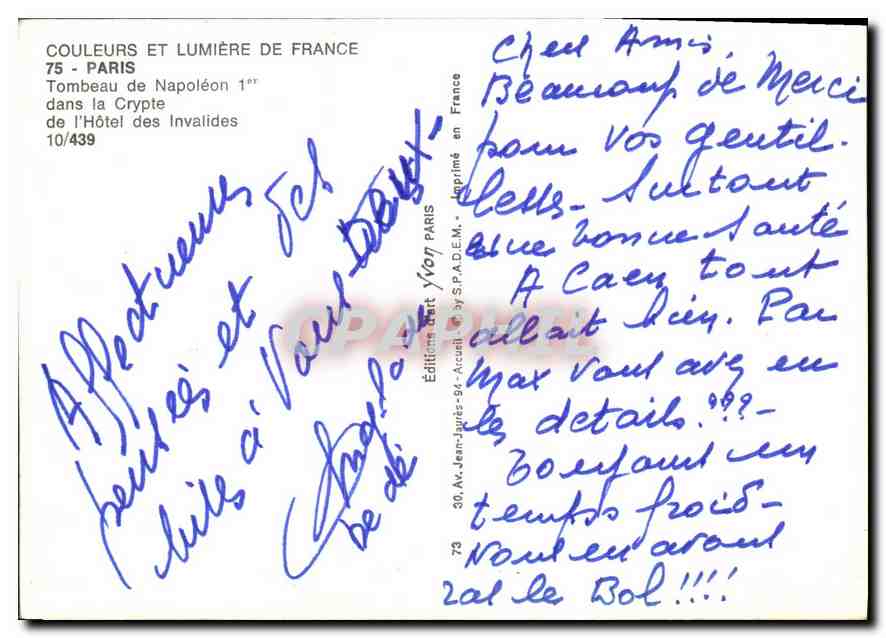 COULEURS ET LUMIÈRE DE FRANCE
75 - PARIS
Tombeau de Napoléon 1er
dans la Crypte
de l'Hôtel des Invalides
10/439
Chers Amis,
Beaucoup de Merci
pour vos gentil-
lesses - Surtout
une bonne Santé
A Caen tout
allait bien. Par
Max vous avez eu
les details.???-
Toujours un
temps froid-
Nous en avons
ras le Bol!!!!
Affectueuses
pensées et
à Vous
Editions d'art yvon PARIS
73 30, Av. Jean-Jaurès - 94 - Arcueil © by S.P.A.D.E.M. - Imprimé en France
CPAPHIL